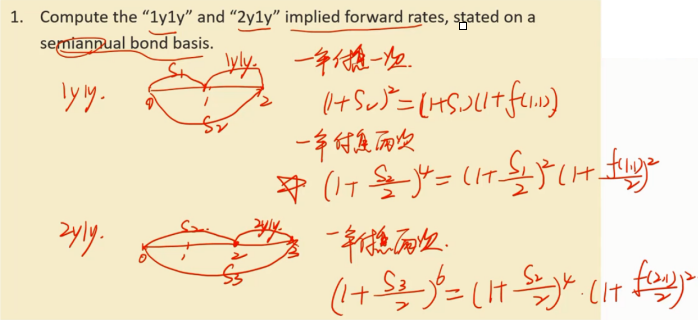 1. Compute the “1y1y” and “2y1y” implied forward rates, stated on a
semiannual bond basis.
一年付息一次.
1y1y. S₁ 1y1y. 0 1 2 S₂
(1+S₂)²=(1+S₁)(1+f(1,1))
一年付息两次
☆ (1+S₂/2)⁴=(1+S₁/2)²(1+f(1,1)/2)²
2y1y. S₂ 2y1y. 0 1 2 3 S₃
一年付息两次.
(1+S₃/2)⁶=(1+S₂/2)⁴·(1+f(2,1)/2)²